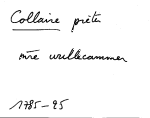 Collaire prêtre
mre wullecammer
1785-95